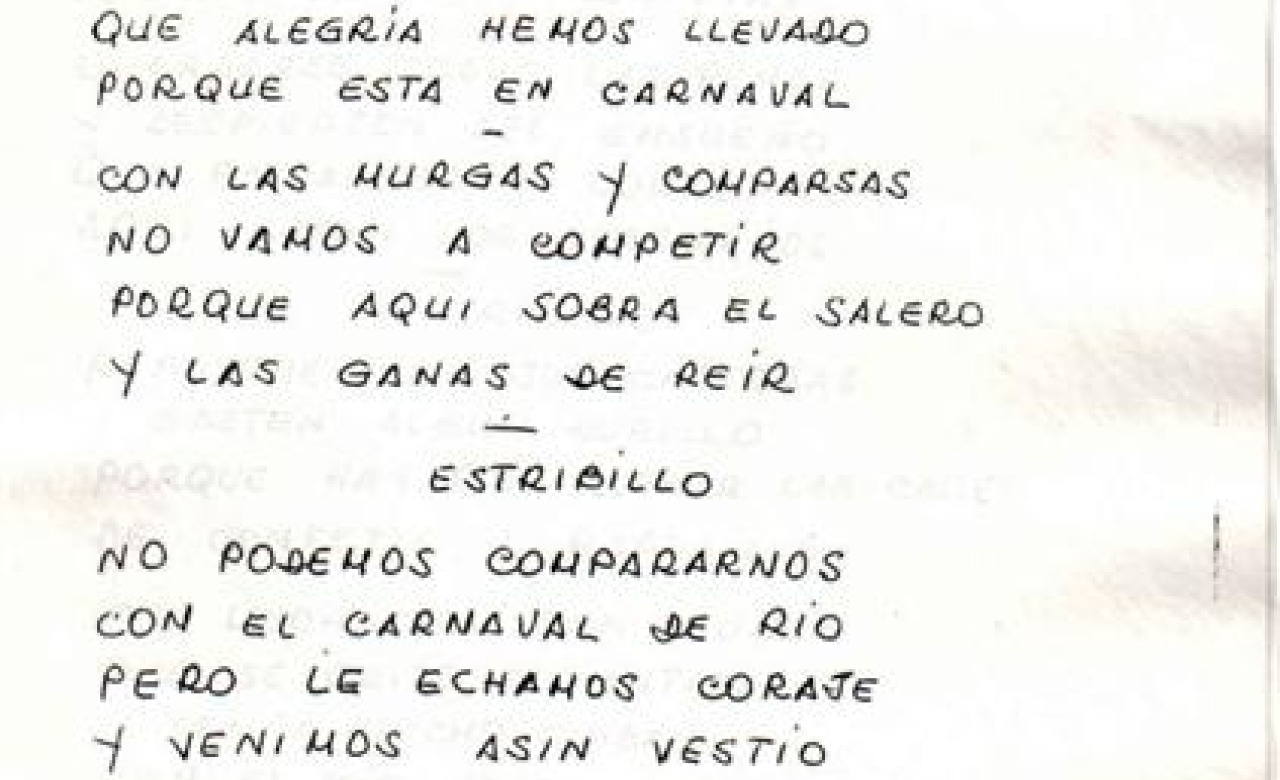 QUE ALEGRiA HEMOS LLEVADO
PORQUE ESTA EN CARNAVAL
-
CON LAS MURGAS Y COMPARSAS
NO VAMOS A COMPETiR
PORQUE AQUI SOBRA EL SALERO
Y LAS GANAS DE REiR
—
ESTRIBiLLO
NO PODEMOS COMPARARNOS
CON EL CARNAVAL DE RiO
PERO LE ECHAMOS CORAJE
Y VENIMOS ASIN VESTiO